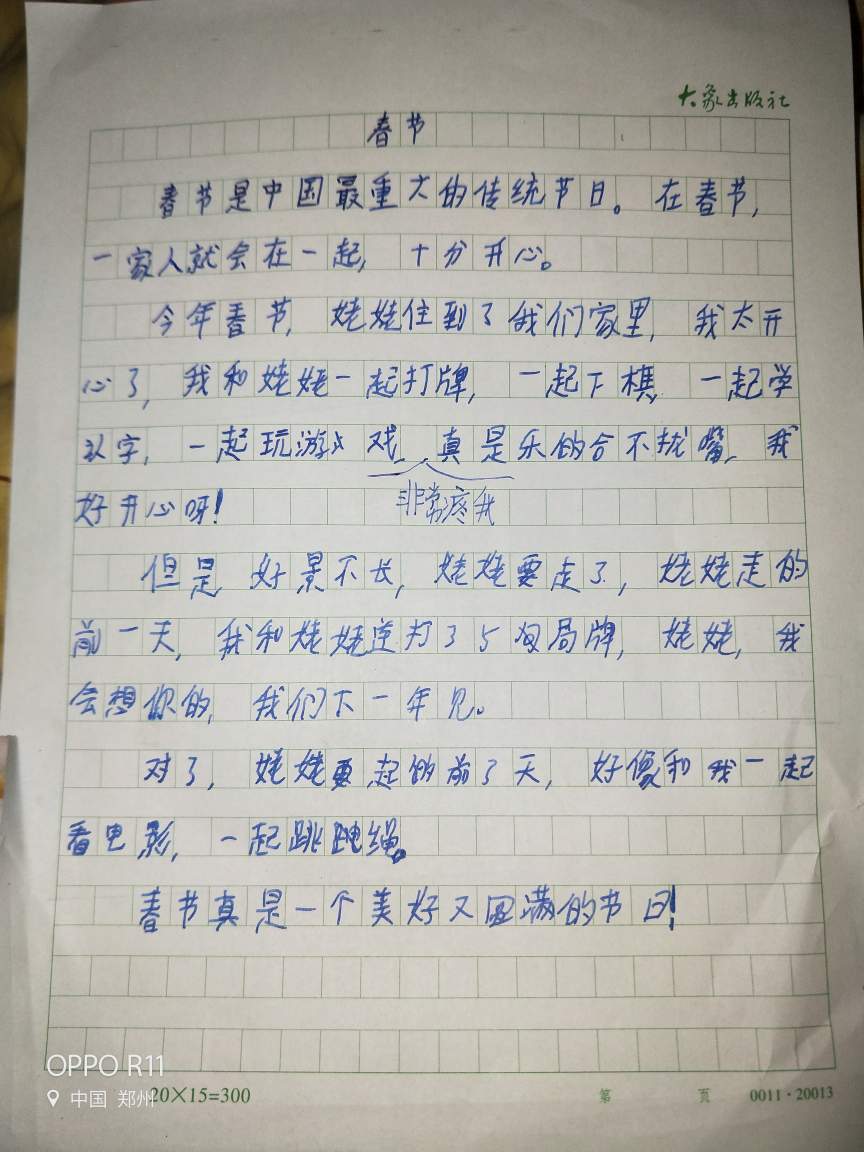 大象出版社
春节
春节是中国最重大的传统节日。在春节,
一家人就会在一起,十分开心。
今年春节,姥姥住到了我们家里,我太开
心了,我和姥姥一起打牌,一起下棋,一起学
认字,一起玩游戏,真是乐的合不拢嘴,我
非常疼我
好开心呀!
但是,好景不长,姥姥要走了,姥姥走的
前一天,我和姥姥连打了5局牌,姥姥,我
会想你的,我们下一年见。
对了,姥姥要起的前了天,好像和我一起
看电影,一起跳跳绳。
春节真是一个美好又圆满的节日!
OPPO R11
中国 郑州
20×15=300
第 页 0011·20013